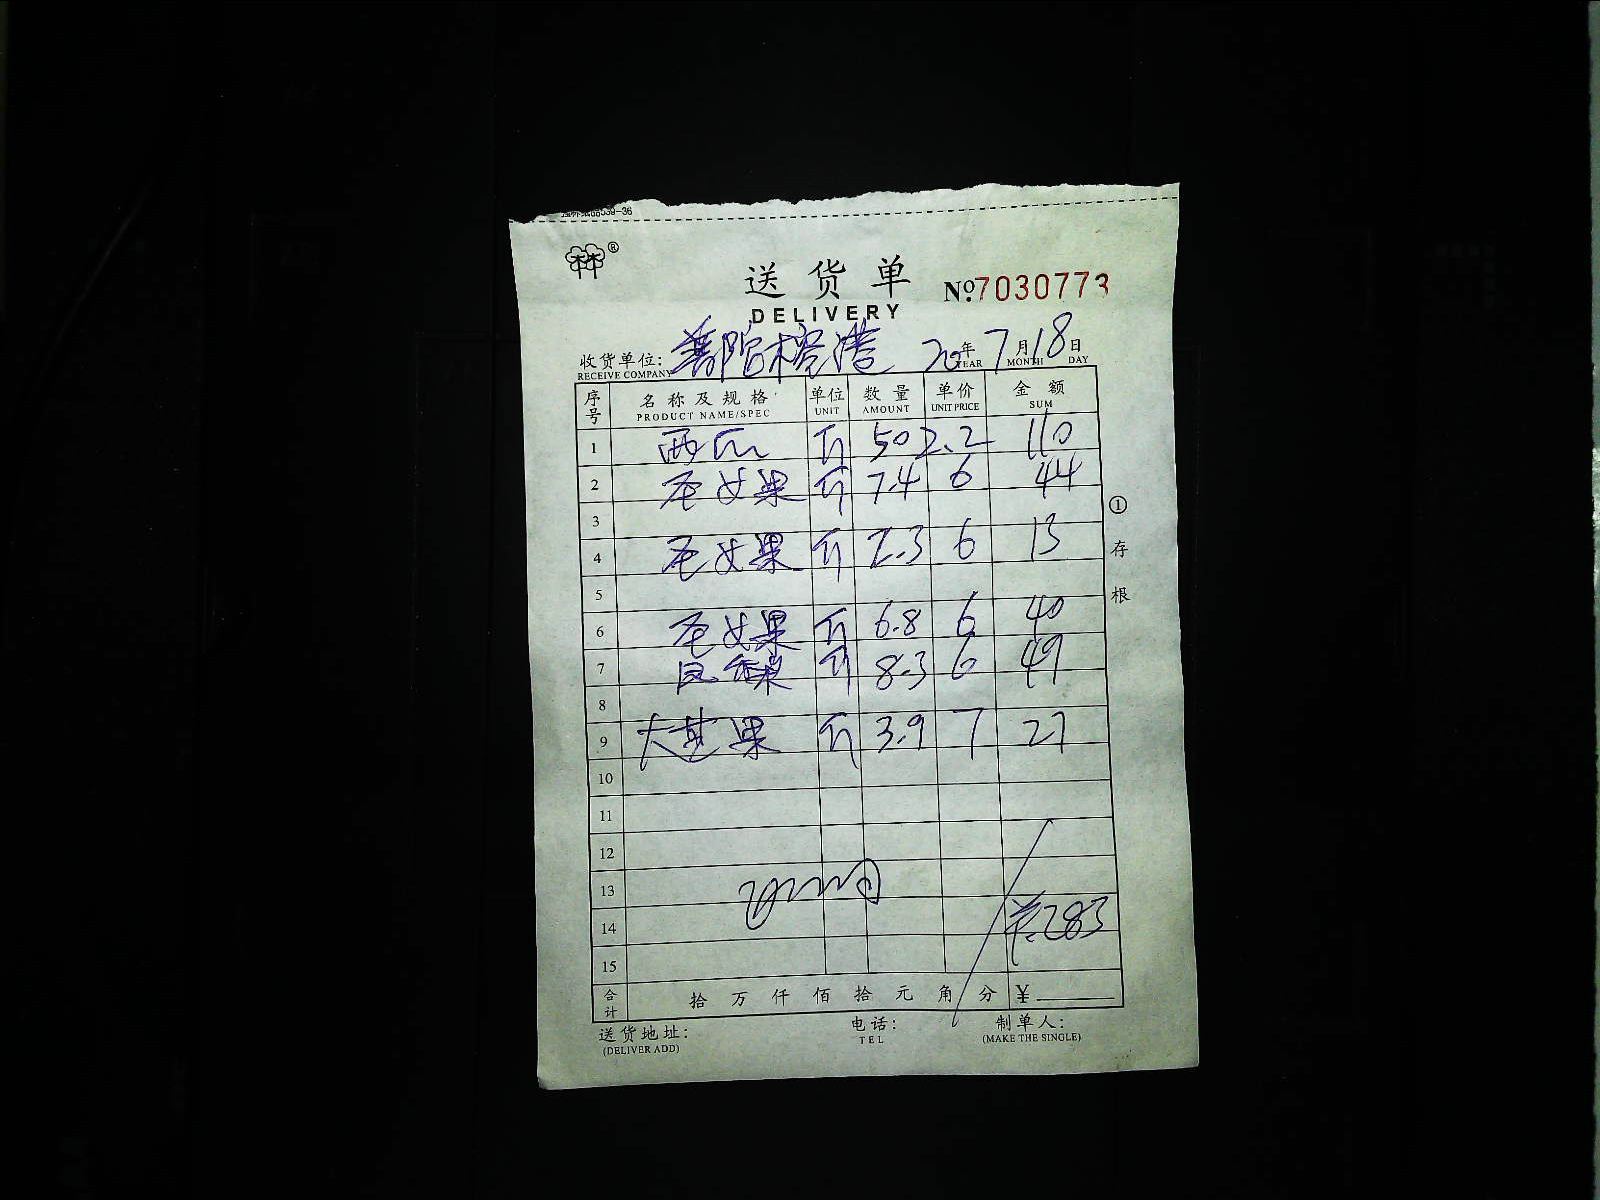 送货单 No.7030773
DELIVERY
收货单位: 普陀 港 20年 7月 18日
RECEIVE COMPANY YEAR MONTH DAY
序号 名称及规格 单位 数量 单价 金额
PRODUCT NAME/SPEC UNIT AMOUNT UNIT PRICE SUM
1 西瓜 斤 50 2.2 110
2 圣女果 斤 7.4 6 44
3
4 圣女果 斤 2.3 6 13
5
6 圣女果 斤 6.8 6 40
7 斤 8.3 6 49
8
9 大芒果 斤 3.9 7 27
10
11
12
13
14 ¥283
15
合计 拾 万 仟 佰 拾 元 角 分 ¥
①存根
送货地址: 电话: 制单人:
(DELIVER ADD) TEL (MAKE THE SINGLE)